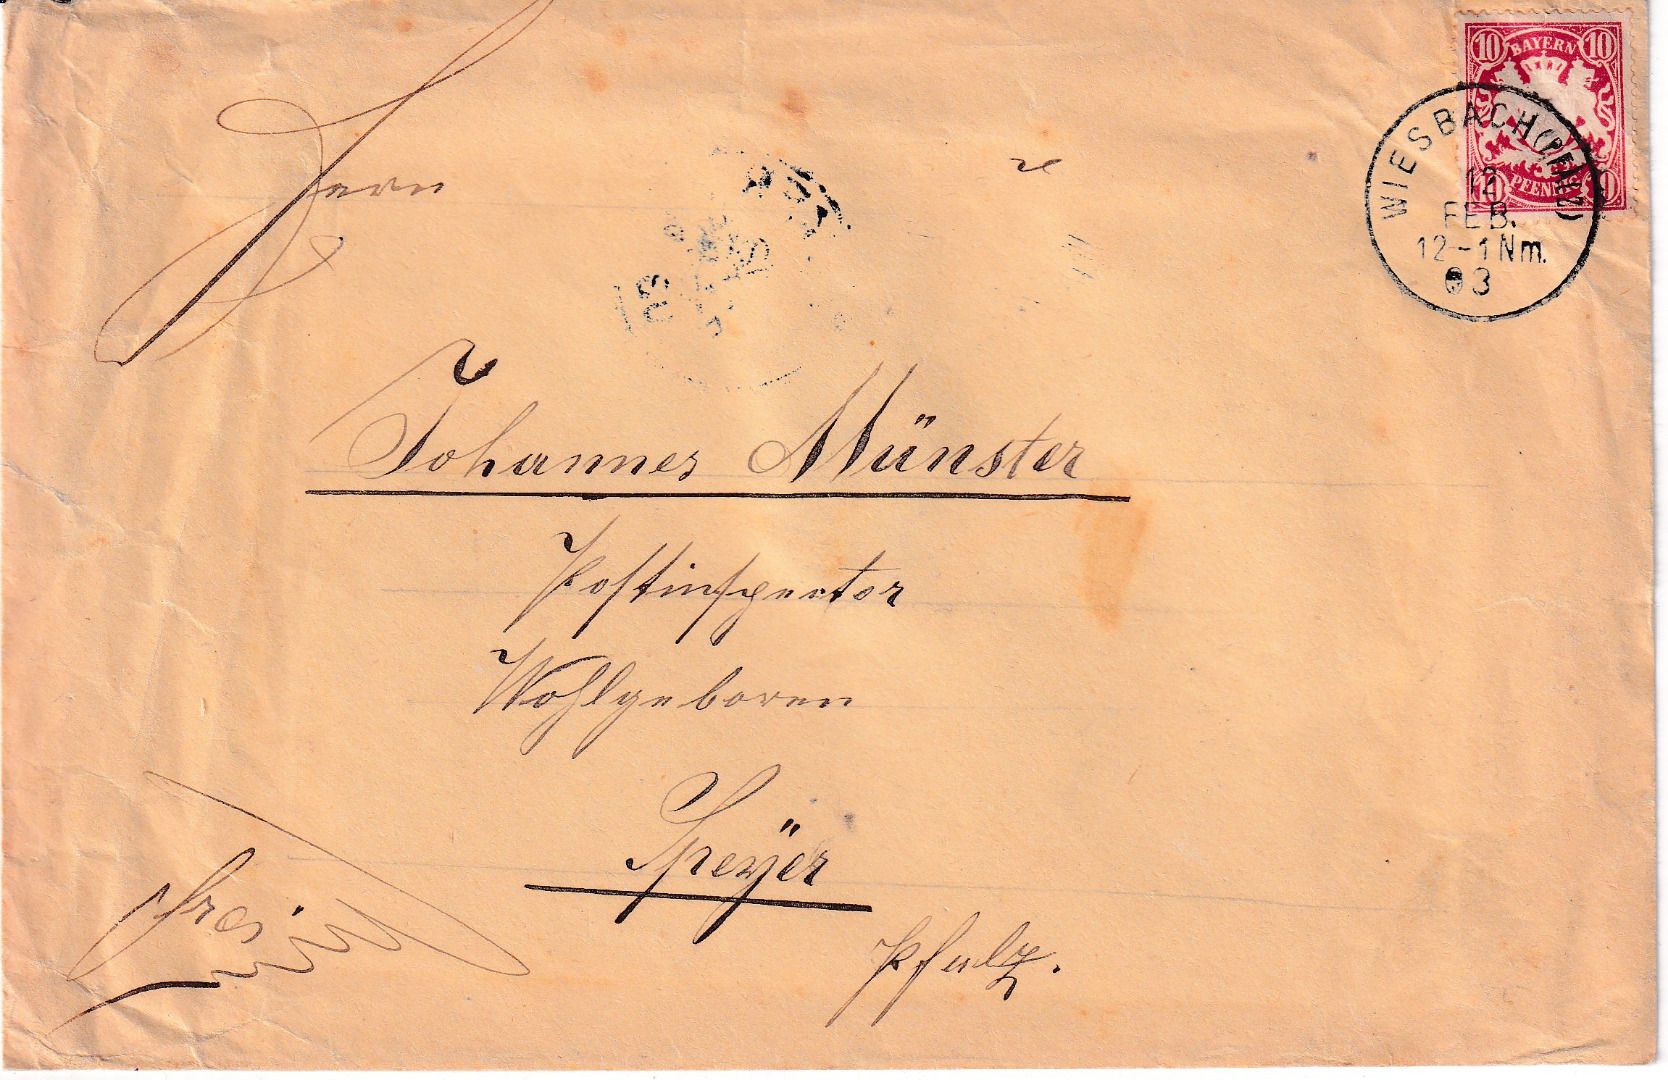 10 BAYERN 10
WIESBACH (PFALZ)
12
FEB.
12-1 Nm.
03
PFENNIG
Herrn
Johannes Münster
Postinspector
Wohlgeboren
Speÿer
Pfalz.
frei